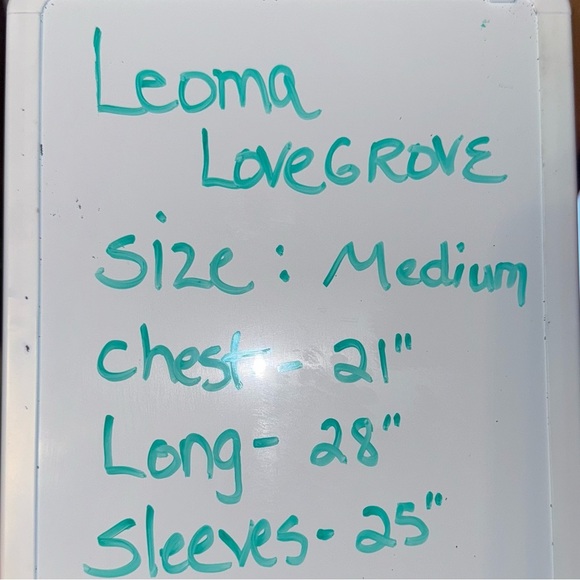 Leoma
LoveGROVE
Size: Medium
Chest - 21"
Long - 28"
Sleeves - 25"